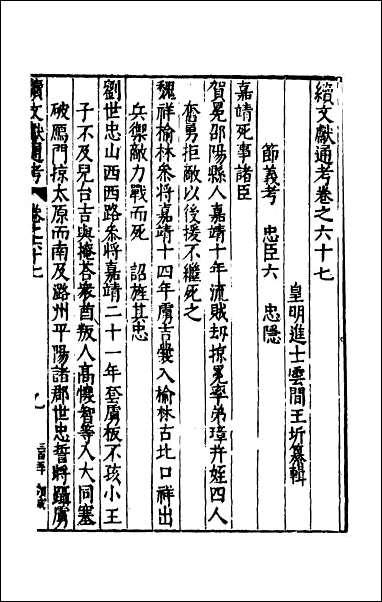 續文獻通考卷之六十七
皇明進士雲間王圻纂輯
節義考 忠臣六 忠隱
嘉靖死事諸臣
賀冕邵陽縣人嘉靖十年流賊刼掠冕率弟璋并姪四人
奮勇拒敵以後援不繼死之
魏祥榆林叅將嘉靖十四年虜吉囊入榆林古北口祥出
兵禦敵力戰而死 詔旌其忠
劉世忠山西西路叅將嘉靖二十一年套虜板不孩小王
子不及見台吉與掩荅衆酋叛人高懷智等入大同塞
破鴈門掠太原而南及潞州平陽諸郡世忠誓將躡虜
續文獻通考 卷之六十七